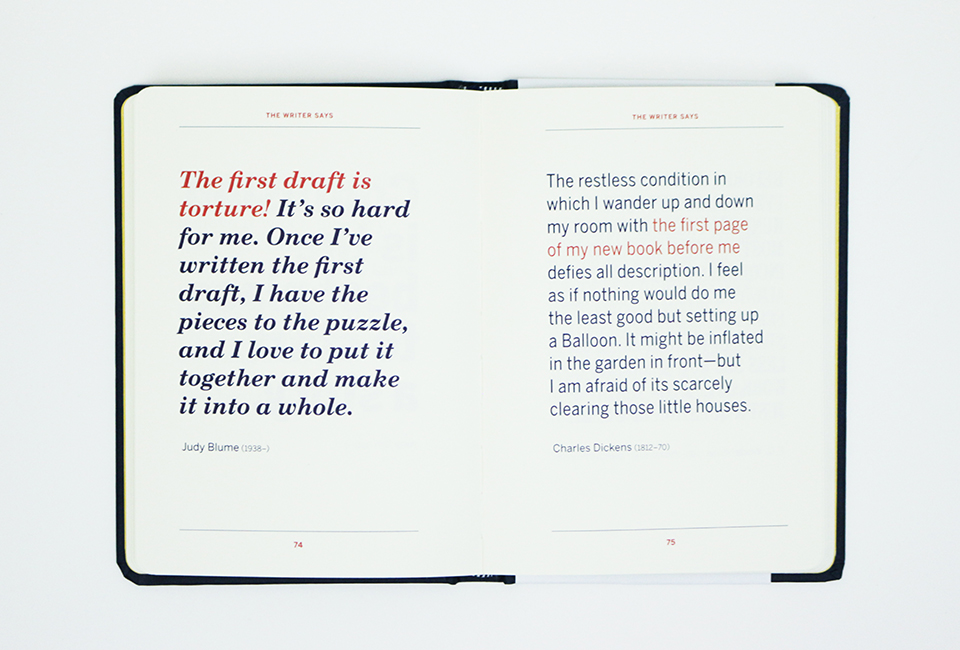 THE WRITER SAYS
The first draft is
torture! It's so hard
for me. Once I've
written the first
draft, I have the
pieces to the puzzle,
and I love to put it
together and make
it into a whole.
Judy Blume (1938–)
74
THE WRITER SAYS
The restless condition in
which I wander up and down
my room with the first page
of my new book before me
defies all description. I feel
as if nothing would do me
the least good but setting up
a Balloon. It might be inflated
in the garden in front—but
I am afraid of its scarcely
clearing those little houses.
Charles Dickens (1812–70)
75